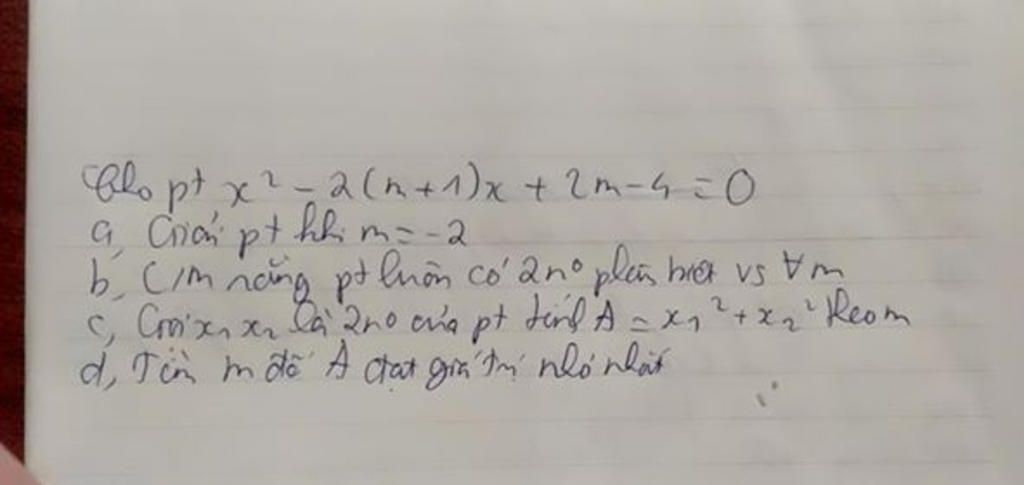 Cho pt x² - 2(n+1)x + 2m-4=0
a, Giải pt khi m=-2
b, C/m rằng pt luôn có 2n⁰ phân biệt vs ∀m
c, Gọi x₁ x₂ là 2n⁰ của pt tính A = x₁² + x₂² theo m
d, Tìm m để A đạt giá trị nhỏ nhất